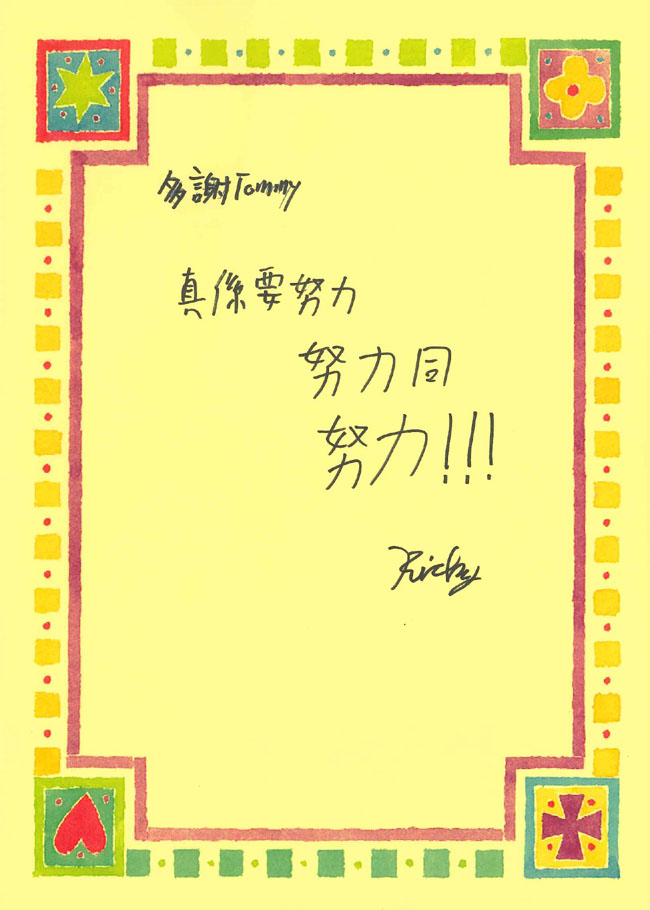 多謝Tommy
真係要努力
努力同
努力!!!
Ricky